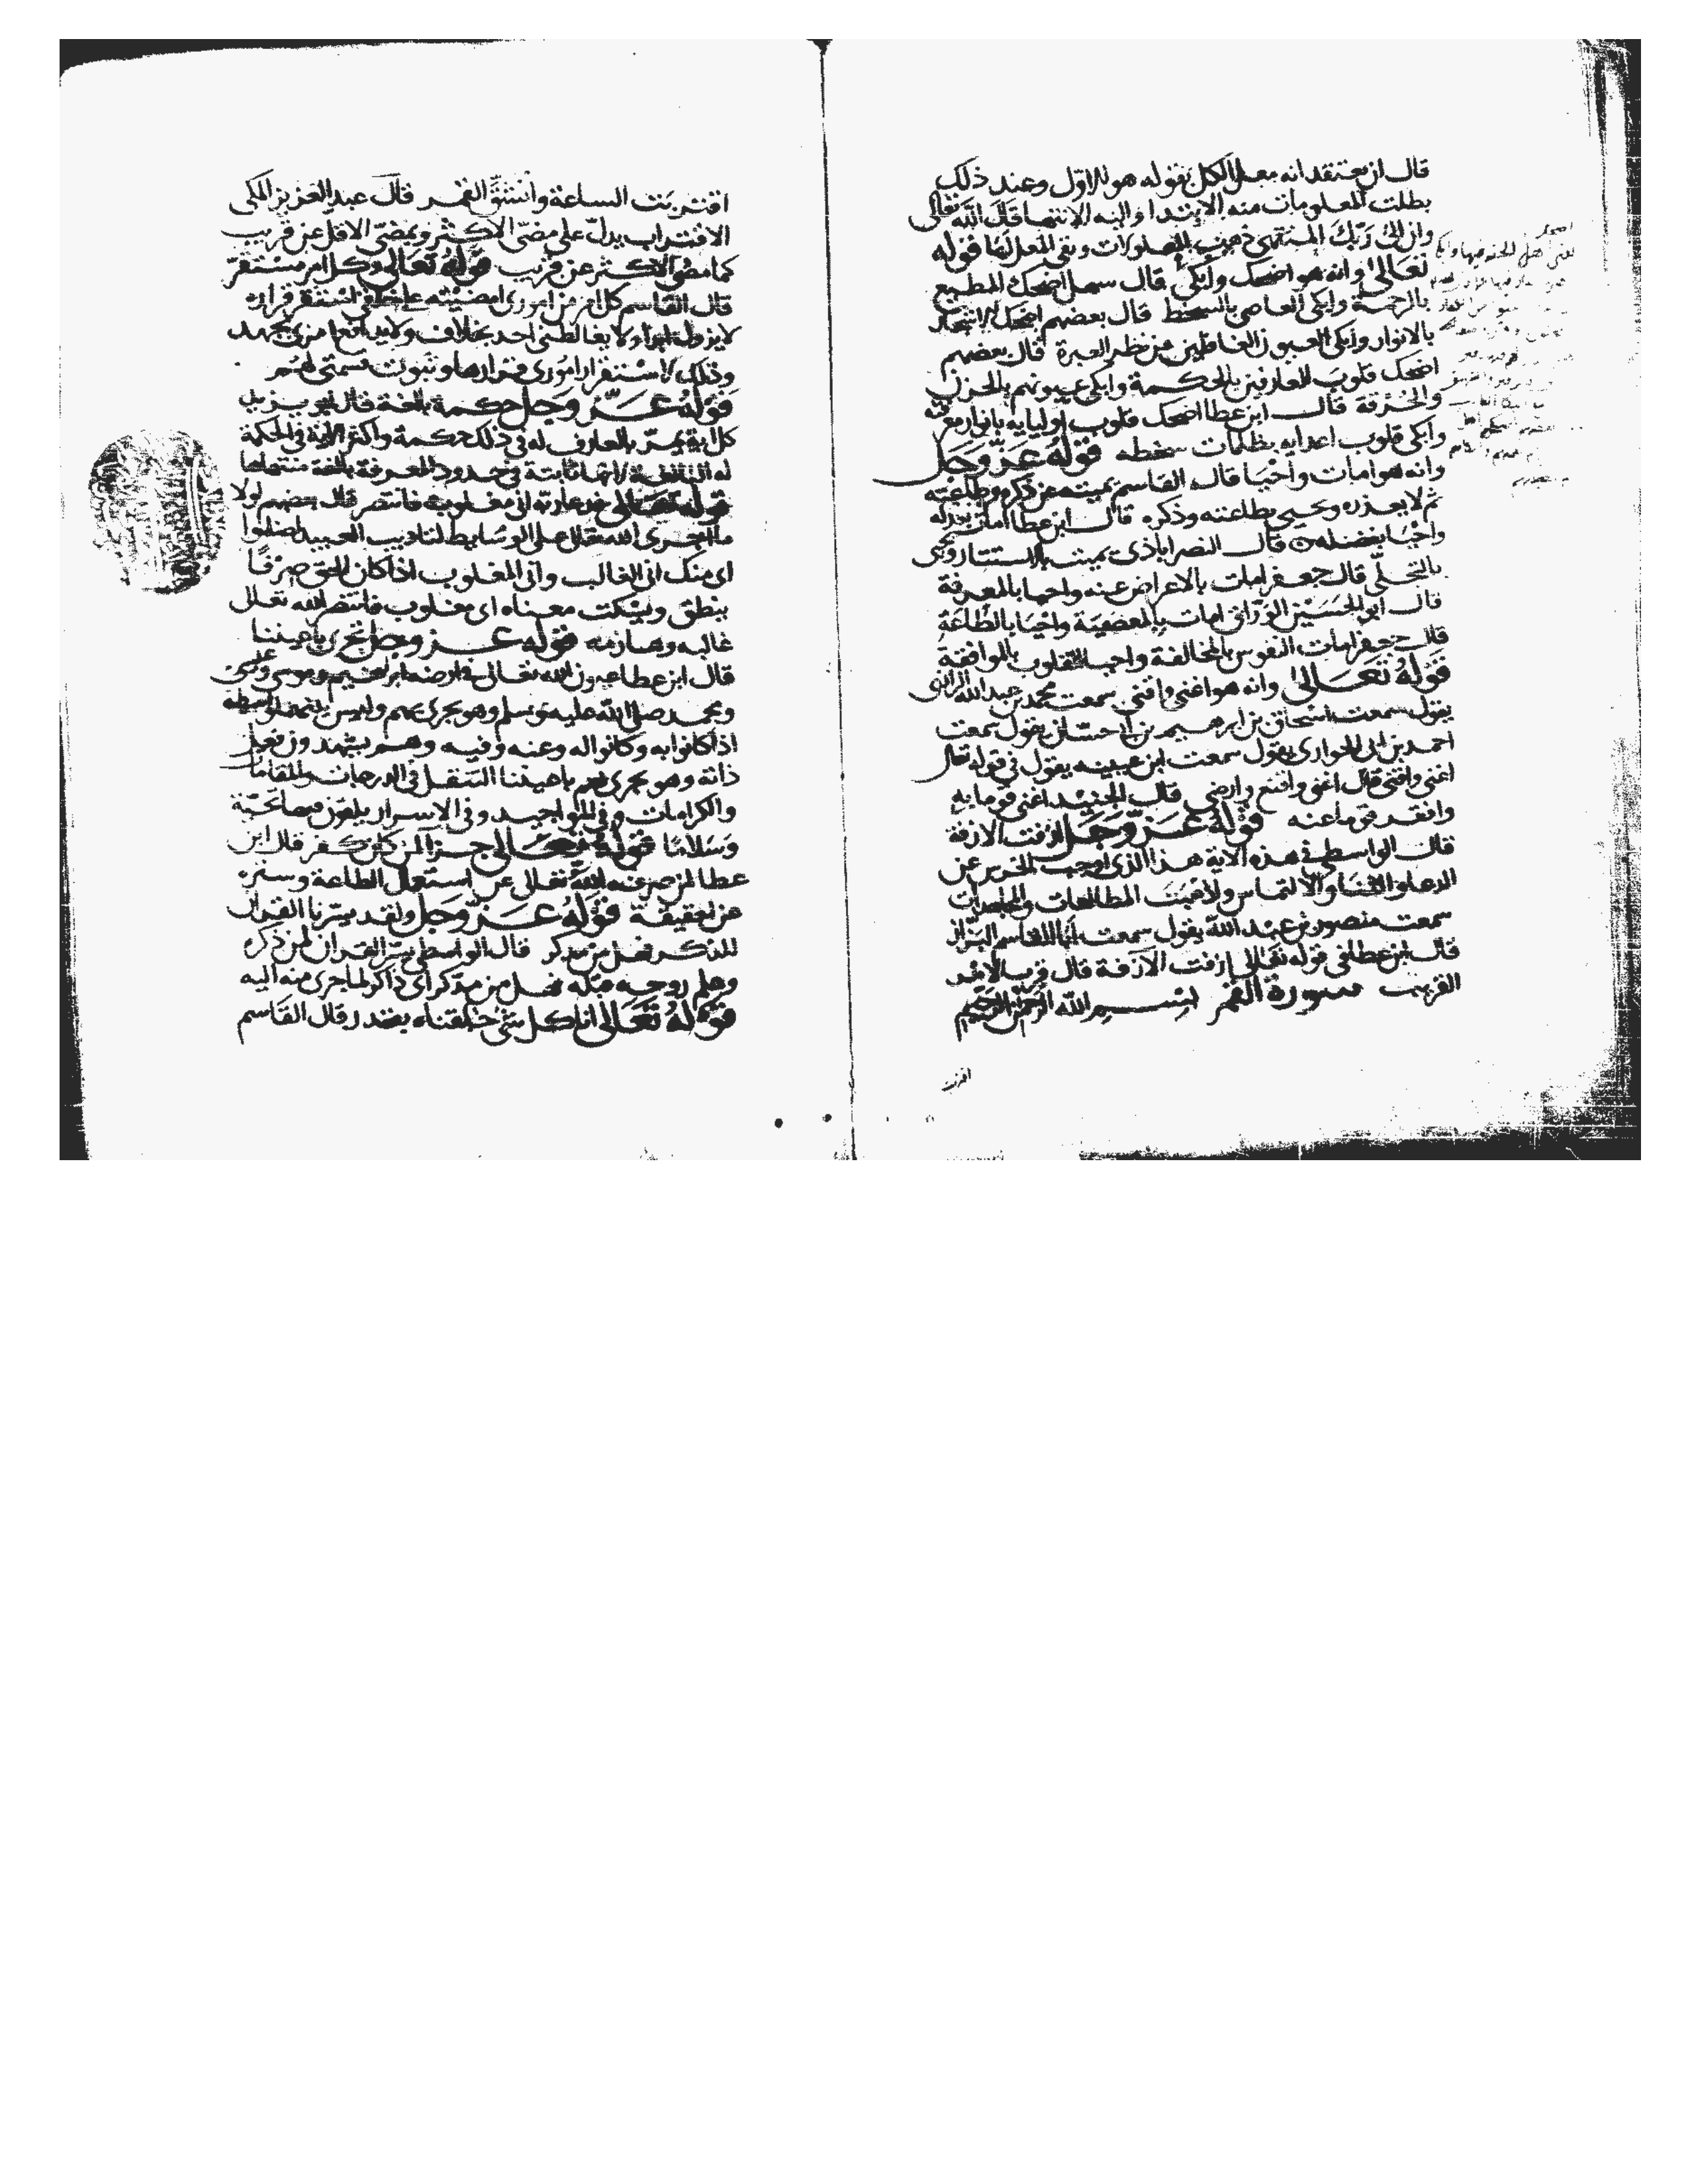 قال ان يعتقد انه معل الكل بقوله هو الاول وعند ذلك
بطلت المعلومات منه الابتدا واليه الانتها قال الله تعالى
وان الى ربك المنتهى ذهبت المعلولات وبقى المعل لها قوله
تعالى وانه هو اضحك وابكى قال سهل اضحك المطيع
بالرحمة وابكى العاصي بالسخط قال بعضهم اضحك الاشجار
بالانوار وابكى العيون الغافلين عن نظر العبرة قال بعضهم
اضحك قلوب العارفين بالحكمة وابكى عيونهم بالحزن
والحرقة قال ابن عطا اضحك قلوب اوليايه بانوار معرفته
وابكى قلوب اعدايه بظلمات سخطه قوله عز وجل
وانه هو امات واحيا قال القاسم يميته عن ذكره وطاعته
ثم لا يعذره ويحيي بطاعته وذكره قال ابن عطا امات بعدله
واحيا بفضله قال النصراباذي يميت بالاستتار ويحيى
بالتجلي قال جعفر امات بالاعراض عنه واحيا بالمعرفة
قال ابو الحسين الوراق امات بالمعصية واحيا بالطاعة
قال جعفر امات النفوس بالمخالفة واحيا القلوب بالموافقة
قوله تعالى وانه هو اغنى واقنى سمعت محمد بن عبد الله الرازي
يقول سمعت اسحاق بن ابرهيم بن ابي حسان يقول سمعت
احمد بن ابي الحواري يقول سمعت ابن عيينه يقول في قوله تعالى
اغنى واقنى قال اغنى واقنع وارضى قال الجنيد اغنى قوما به
وافقر قوما عنه قوله عز وجل ازفت الازفة
قال الواسطي في هذه الاية هذا الذي اوجب الخرس عن
الدعا والثنا والالتماس ولا هيت المطالعات والمجاهدات
سمعت منصور بن عبد الله يقول سمعت ابا القاسم البزاز
قال ابن عطا في قوله تعالى ازفت الازفة قال قرب الامر
القريب سورة القمر بسم الله الرحمن الرحيم
اقتربت
اقتربت الساعة وانشق القمر قال عبد العزيز المكي
الاقتراب يدل على مضي الاكثر وبمضي الاقل عن قريب
كما مضى الاكثر عن قريب قوله تعالى وكل امر مستقر
قال القاسم كل امر من اموري امضيته على خلقي استقر قراره
لا يزول ابدا ولا يغالطني احد بخلاف ولا يدافع امري بجهد
وذلك لاستقرار اموري قرارها وثبوت قسمتي لهم
قوله عز وجل حكمة بالغة قال ابو يزيد
كل اية يمر بالعارف له في ذلك حكمة واكثر الاية في الحكمة
له البالغة انها ثابتة في حدود المعرفة بالغة منتهاها
قوله تعالى فدعا ربه اني مغلوب فانتصر قال بعضهم لولا
ما اجرى الله تعالى على الوسايط لتاديب العبيد لضلوا
اي منك اني الغالب واني المغلوب اذا كان الحق صرفا
ينطق ويسكت معناه اي مغلوب فانتصر الله تعالى
غالبه وهازمه قوله عز وجل تجري باعيننا
قال ابن عطا عيون الله تعالى في ارضه ابرهيم وموسى وعيسى
ومحمد صلى الله عليه وسلم وهو يجري بهم وليس بينهم واسطة
اذا كانوا به وكانوا له وعنه وفيه وهم
ذاته وهو يجري بهم باعيننا التنقل في الدرجات والمقامات
والكرامات وفي المواجيد وفي الاسرار يلقون فيها تحية
وسلاما قوله تعالى جزآ لمن كان كفر قال ابن
عطا لمن صرفه الله تعالى عن استعمال الطاعة وستره
عن الحقيقة قوله عز وجل ولقد يسرنا القران
للذكر فهل من مدكر قال الواسطي يسر القران لمن ذكره
وعلم روحه قبله فهل من مدكر اي ذاكر لما جرى منه اليه
قوله تعالى انا كل شي خلقناه بقدر قال القاسم